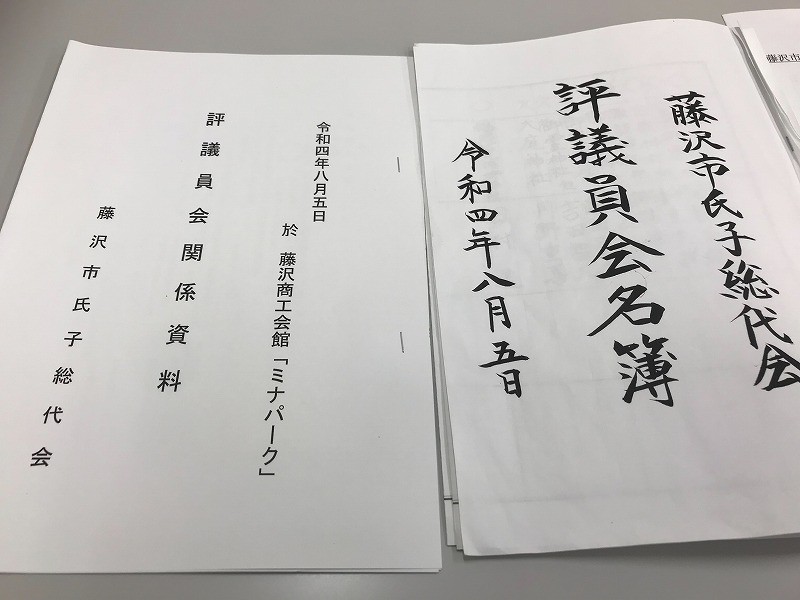 令和四年八月五日
於 藤沢商工会館「ミナパーク」
評議員会関係資料
藤沢市氏子総代会
藤沢市氏子総代会
評議員会名簿
令和四年八月五日
藤沢市